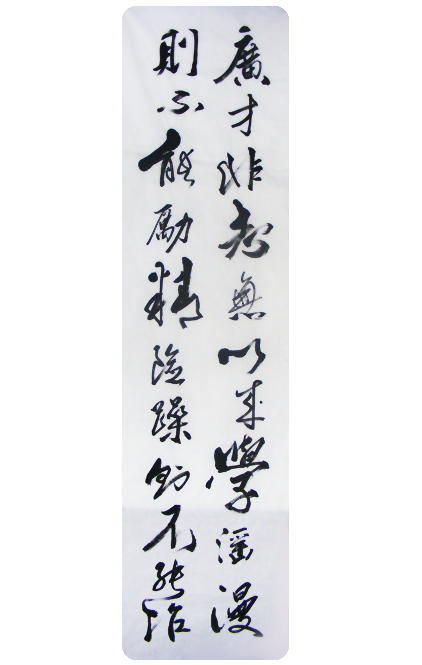 廣才非志無以成學滛漫
則不能勵精險躁則不能治